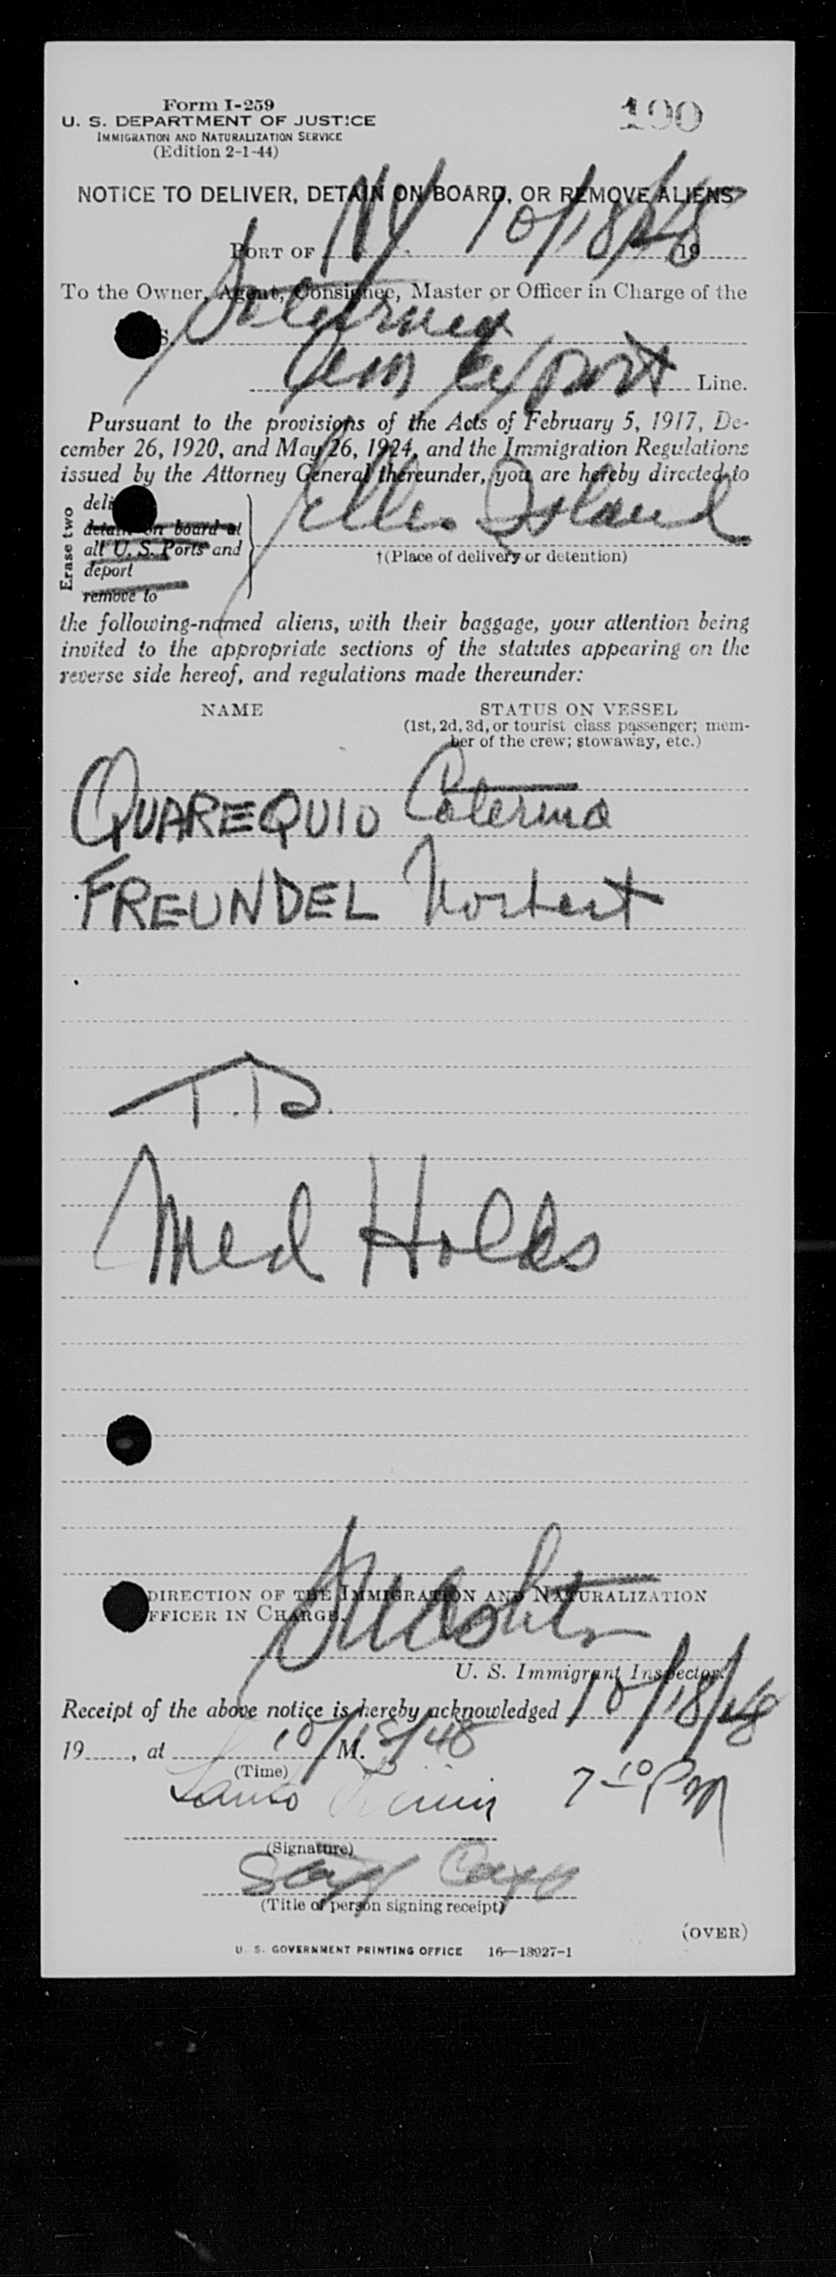 Form I-259
U. S. DEPARTMENT OF JUSTICE
IMMIGRATION AND NATURALIZATION SERVICE
(Edition 2-1-44)
190
NOTICE TO DELIVER, DETAIN ON BOARD, OR REMOVE ALIENS
PORT OF NY 10/18/48 19
To the Owner, Agent, Consignee, Master or Officer in Charge of the
S
Am Export Line.
Pursuant to the provisions of the Acts of February 5, 1917, De-
cember 26, 1920, and May 26, 1924, and the Immigration Regulations
issued by the Attorney General thereunder, you are hereby directed to
Erase two
deli
detain on board at
all U. S. Ports and
deport
remove to
Ellis Island
†(Place of delivery or detention)
the following-named aliens, with their baggage, your attention being
invited to the appropriate sections of the statutes appearing on the
reverse side hereof, and regulations made thereunder:
NAME STATUS ON VESSEL
(1st, 2d, 3d, or tourist class passenger; mem-
ber of the crew; stowaway, etc.)
QUAREQUIO Caterina
FREUNDEL Norbert
T.D.
Med Holds
DIRECTION OF THE IMMIGRATION AND NATURALIZATION
FFICER IN CHARGE.
U. S. Immigrant Inspector.
Receipt of the above notice is hereby acknowledged 10/18/48
19 , at 10/18/48 M.
(Time)
7 10 PM
(Signature)
(Title of person signing receipt)
(OVER)
U. S. GOVERNMENT PRINTING OFFICE 16—18927-1